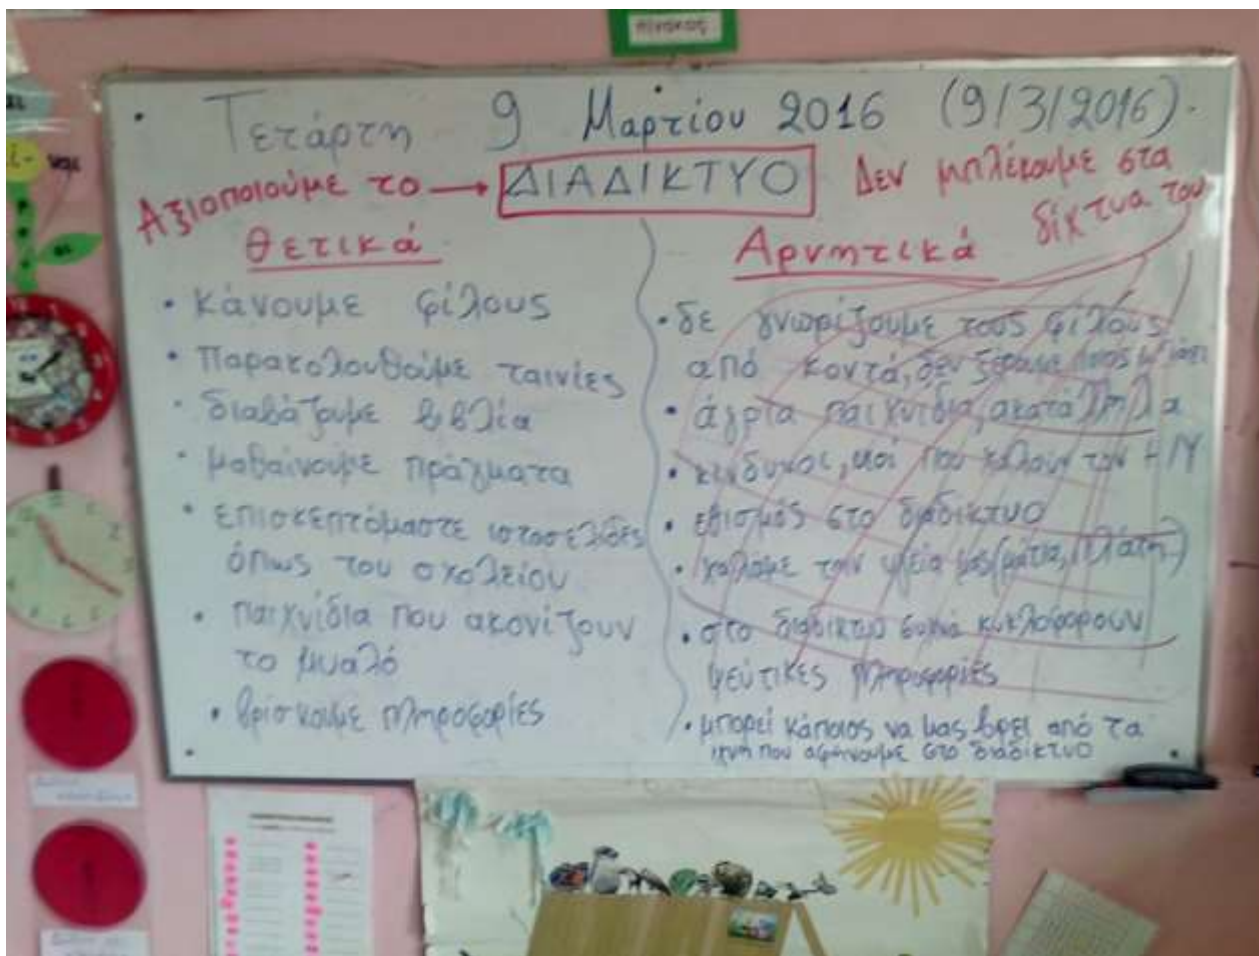 πίνακας
Τετάρτη 9 Μαρτίου 2016 (9/3/2016).
Αξιοποιούμε το → ΔΙΑΔΙΚΤΥΟ Δεν μπλέκουμε στα
δίχτυα του
Θετικά
• κάνουμε φίλους
• παρακολουθούμε ταινίες
• διαβάζουμε βιβλία
• μαθαίνουμε πράγματα
• επισκεπτόμαστε ιστοσελίδες
όπως του σχολείου
• παιχνίδια που ακονίζουν
το μυαλό
• βρίσκουμε πληροφορίες
Αρνητικά
• δε γνωρίζουμε τους φίλους
από κοντά, δεν ξέρουμε ποιος είναι
• άγρια παιχνίδια, ακατάλληλα
• κίνδυνοι, ιοί που χαλούν τον Η/Υ
• εθισμός στο διαδίκτυο
• χαλάμε την υγεία μας (μάτια, πλάτη)
• στο διαδίκτυο συχνά κυκλοφορουν
ψεύτικες πληροφορίες
• μπορεί κάποιος να μας βρει από τα
ίχνη που αφήνουμε στο διαδίκτυο